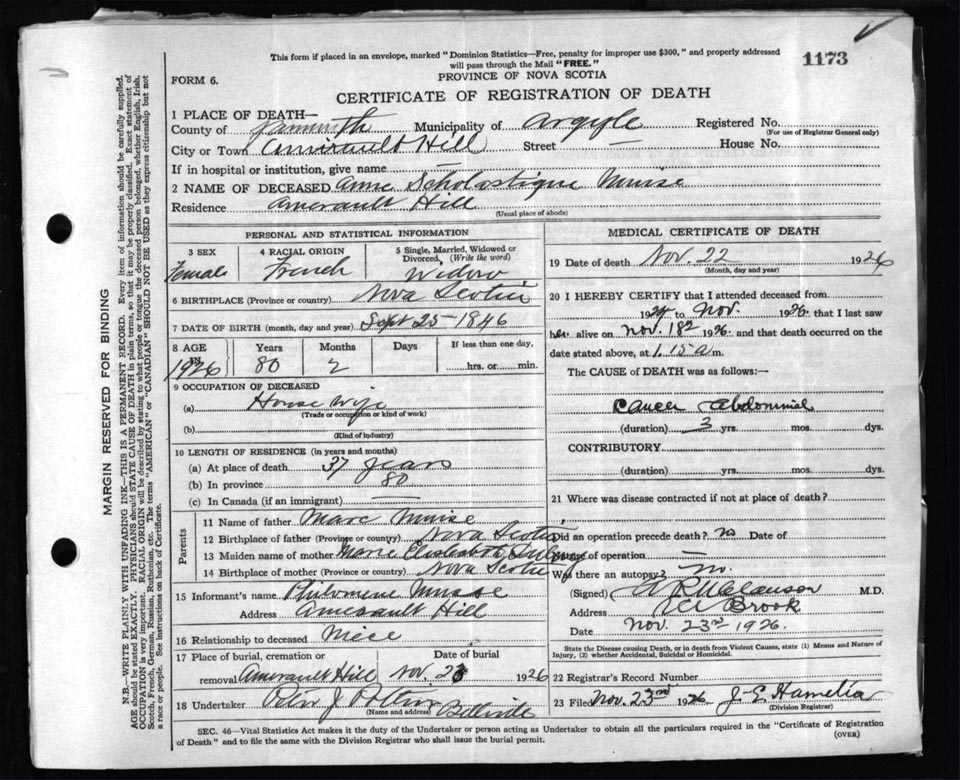 This form if placed in an envelope, marked "Dominion Statistics—Free, penalty for improper use $300," and properly addressed
will pass through the Mail "FREE."
1173
FORM 6.
PROVINCE OF NOVA SCOTIA
CERTIFICATE OF REGISTRATION OF DEATH
MARGIN RESERVED FOR BINDING
N.B.—WRITE PLAINLY WITH UNFADING INK—THIS IS A PERMANENT RECORD. Every item of information should be carefully supplied.
AGE should be stated EXACTLY. PHYSICIANS should STATE CAUSE OF DEATH in plain terms, so that it may be properly classified. Exact statement of
OCCUPATION is very important. RACIAL ORIGIN will be described by stating to what people or tongue the deceased person belonged, whether English, Irish,
Scotch, French, German, Russian, Ruthenian, etc. The terms "AMERICAN" or "CANADIAN" SHOULD NOT BE USED as they express citizenship but not
a race or people. See instructions on back of Certificate.
1 PLACE OF DEATH—
County of Yarmouth Municipality of Argyle Registered No.
(For use of Registrar General only)
City or Town Amirault Hill Street — House No.
If in hospital or institution, give name —
2 NAME OF DECEASED Anne Scholastique Muise
Residence Amerault Hill
(Usual place of abode)
PERSONAL AND STATISTICAL INFORMATION
3 SEX
Female
4 RACIAL ORIGIN
French
5 Single, Married, Widowed or
Divorced, (Write the word)
Widow
6 BIRTHPLACE (Province or country) Nova Scotia
7 DATE OF BIRTH (month, day and year) Sept 25-1846
8 AGE Years Months Days If less than one day,
IN 1926 80 2 hrs. or min.
9 OCCUPATION OF DECEASED
(a) House Wife
(Trade or occupation or kind of work)
(b)
(Kind of industry)
10 LENGTH OF RESIDENCE (in years and months)
(a) At place of death 37 years
(b) In province 80
(c) In Canada (if an immigrant) —
Parents
11 Name of father Marc Muise
12 Birthplace of father (Province or country) Nova Scotia
13 Maiden name of mother Marie Elisabeth
14 Birthplace of mother (Province or country) Nova Scotia
15 Informant's name Philomene Muise
Address Amerault Hill
16 Relationship to deceased Niece
17 Place of burial, cremation or Date of burial
removal Amerault Hill Nov. 23 1926
18 Undertaker Peter J Potier Belleville
(Name and address)
MEDICAL CERTIFICATE OF DEATH
19 Date of death Nov. 22 1926
(Month, day and year)
20 I HEREBY CERTIFY that I attended deceased from
1924 to Nov. 1926. that I last saw
her alive on Nov. 18th 1926. and that death occurred on the
date stated above, at 1.15 a m.
The CAUSE of DEATH was as follows:—
Cancer Abdominal
(duration) 3 yrs. mos. dys.
CONTRIBUTORY
(duration) yrs. mos. dys.
21 Where was disease contracted if not at place of death?
Did an operation precede death? no Date of
of operation —
Was there an autopsy? no.
(Signed) M.D.
Address Brook
Date Nov. 23rd 1926.
State the Disease causing Death, or in death from Violent Causes, state (1) Means and Nature of
Injury, (2) whether Accidental, Suicidal or Homicidal.
22 Registrar's Record Number
23 Filed Nov. 23rd 1926 J. E. Hamelin
(Division Registrar)
SEC. 46—Vital Statistics Act makes it the duty of the Undertaker or person acting as Undertaker to obtain all the particulars required in the "Certificate of Registration
of Death" and to file the same with the Division Registrar who shall issue the burial permit.
(OVER)